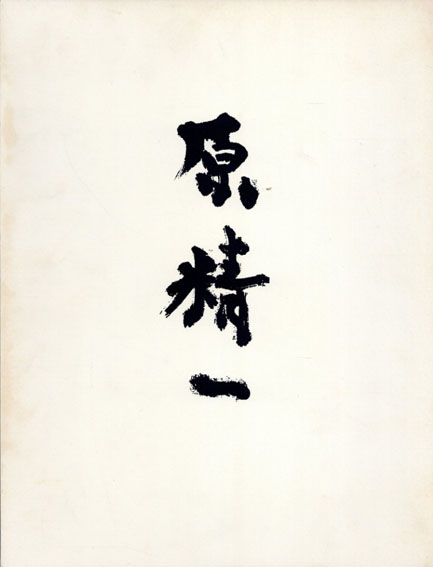 原精一